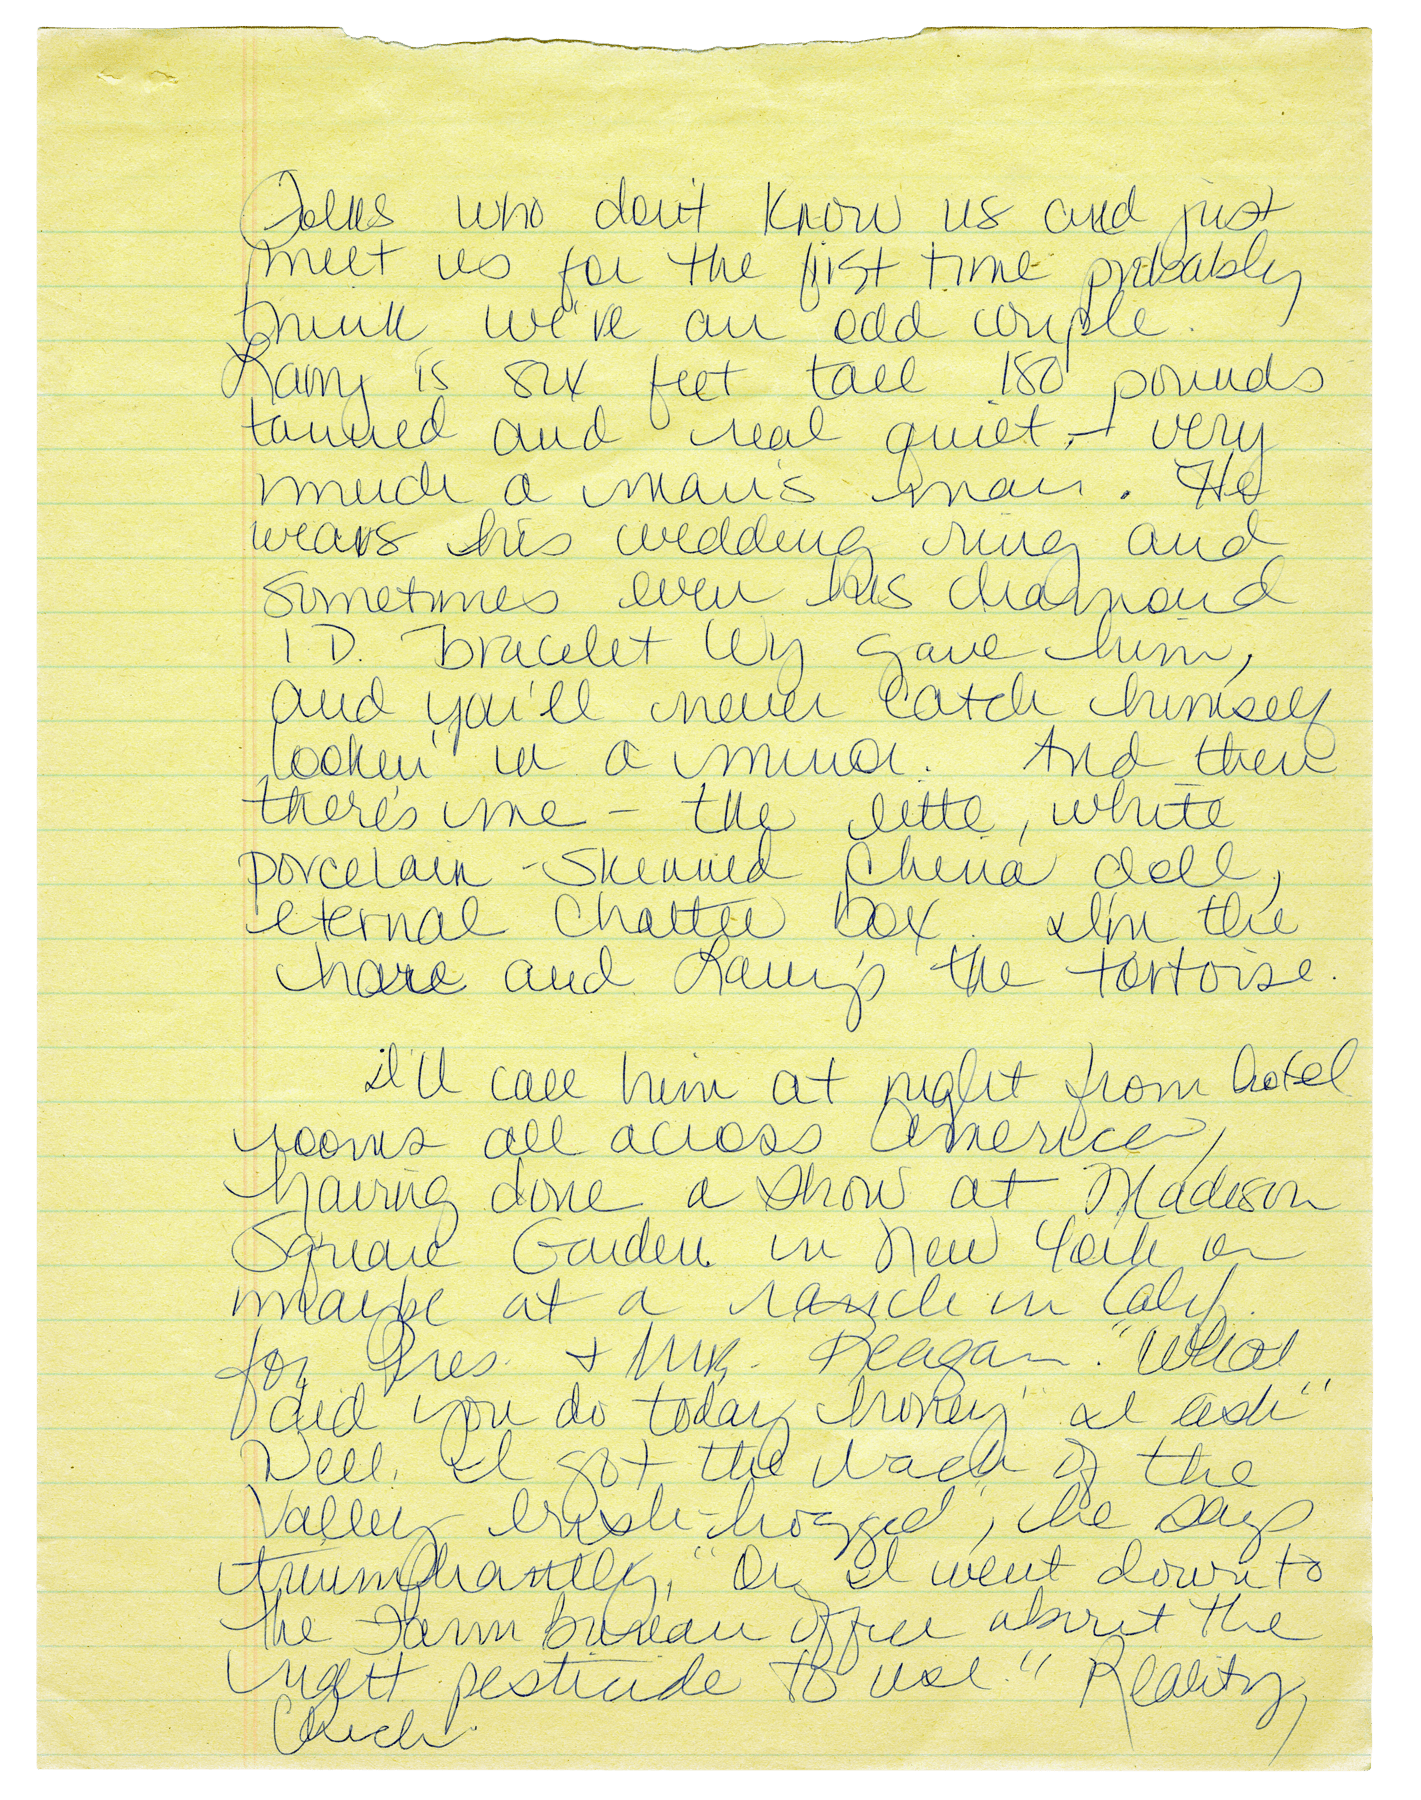 Folks who don't know us and just
meet us for the first time probably
think we're an odd couple.
Larry is six feet tall 180 pounds
tanned and real quiet - very
much a man's man. He
wears his wedding ring and
sometimes even his diamond
I D. Bracelet Wy gave him,
and you'll never catch himself
lookin' in a mirror. And then
there's me - the little, white
porcelain - skinned China doll,
eternal Chatter box. I'm the
hare and Larry's the tortoise.
I'll call him at night from hotel
rooms all across America,
having done a show at Madison
Square Garden in New York or
maybe at a ranch in Calif.
for Pres. + Mrs. Reagan. "What
did you do today honey" I ask"
Well, I got the back of the
Valley brush-hogged", he says
triumphantly, "Or, I went down to
the Farm bureau office about the
right pesticide to use." Reality
Check.